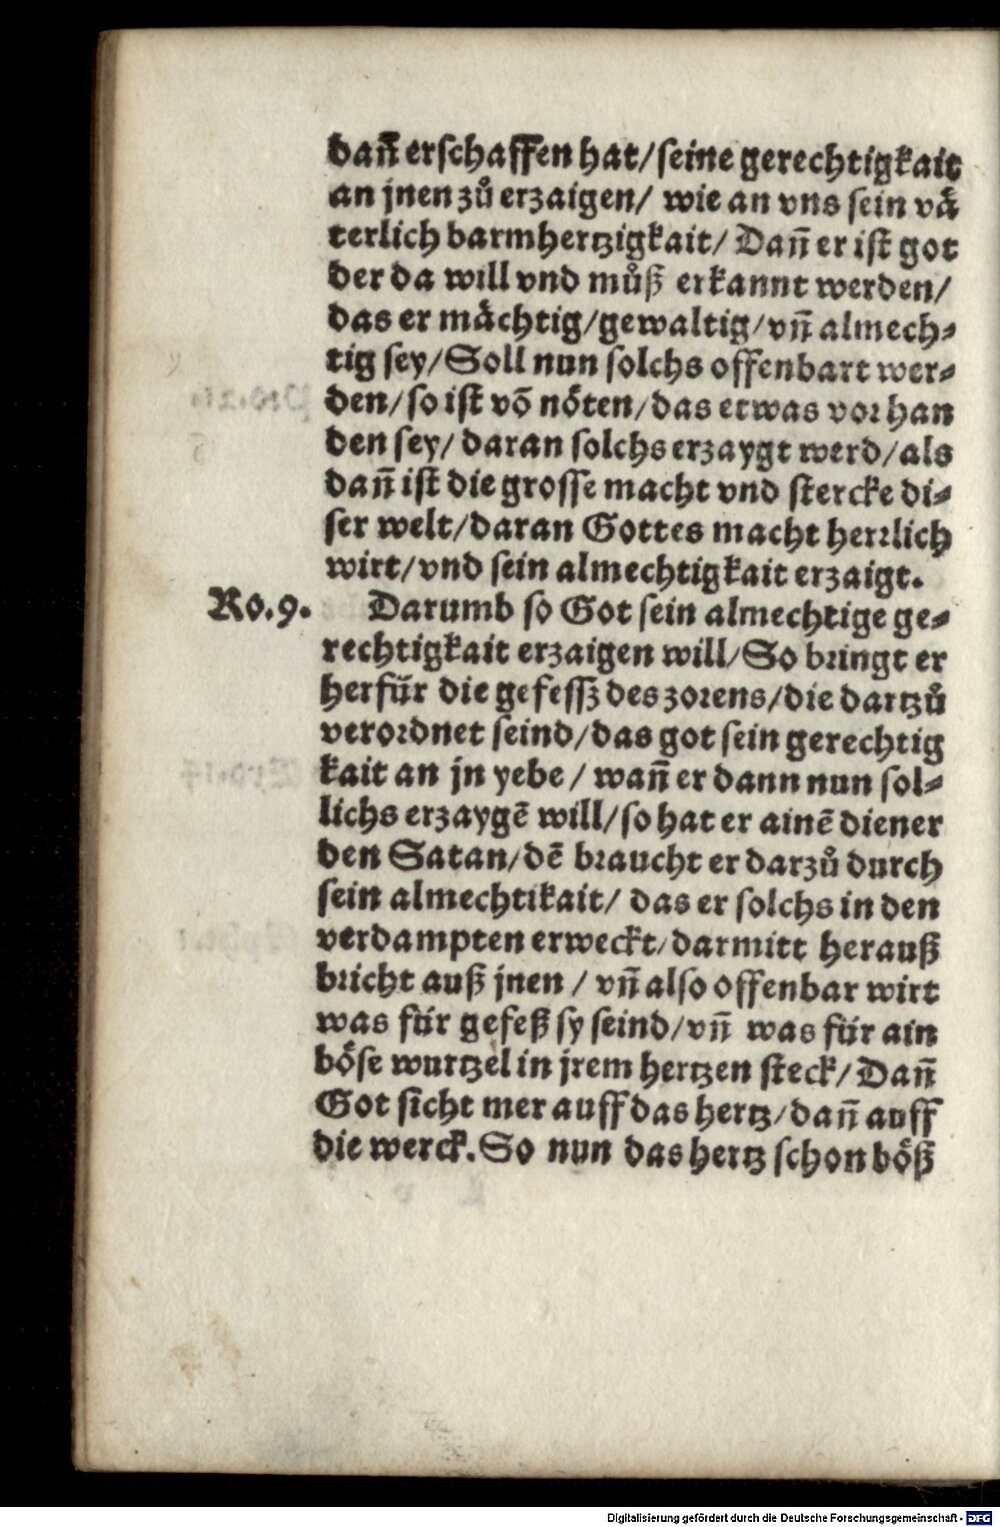 dañ erschaffen hat/seine gerechtigkait
an jnen zů erzaigen/ wie an vns sein vä
terlich barmhertzigkait/ Dañ er ist got
der da will vnd můß erkannt werden/
das er mächtig/gewaltig/vñ almech⸗
tig sey/Soll nun solchs offenbart wer⸗
den/so ist võ nöten/das etwas vorhan
den sey/ daran solchs erzaygt werd/als
dañ ist die grosse macht vnd stercke di⸗
ser welt/daran Gottes macht herrlich
wirt/vnd sein almechtigkait erzaigt.
Ro.9. Darumb so Got sein almechtige ge⸗
rechtigkait erzaigen will/So bringt er
herfür die gefessz des zorens/die dartzů
verordnet seind/das got sein gerechtig
kait an jn yebe/ wañ er dann nun sol⸗
lichs erzaygẽ will/so hat er ainẽ diener
den Satan/dẽ braucht er darzů durch
sein almechtikait/ das er solchs in den
verdampten erweckt/darmitt herauß
bricht auß jnen / vñ also offenbar wirt
was für gefeß sy seind/vñ was für ain
böse wurtzel in jrem hertzen steck/ Dañ
Got sicht mer auff das hertz/dañ auff
die werck. So nun das hertz schon böß
Digitalisierung gefördert durch die Deutsche Forschungsgemeinschaft - DFG